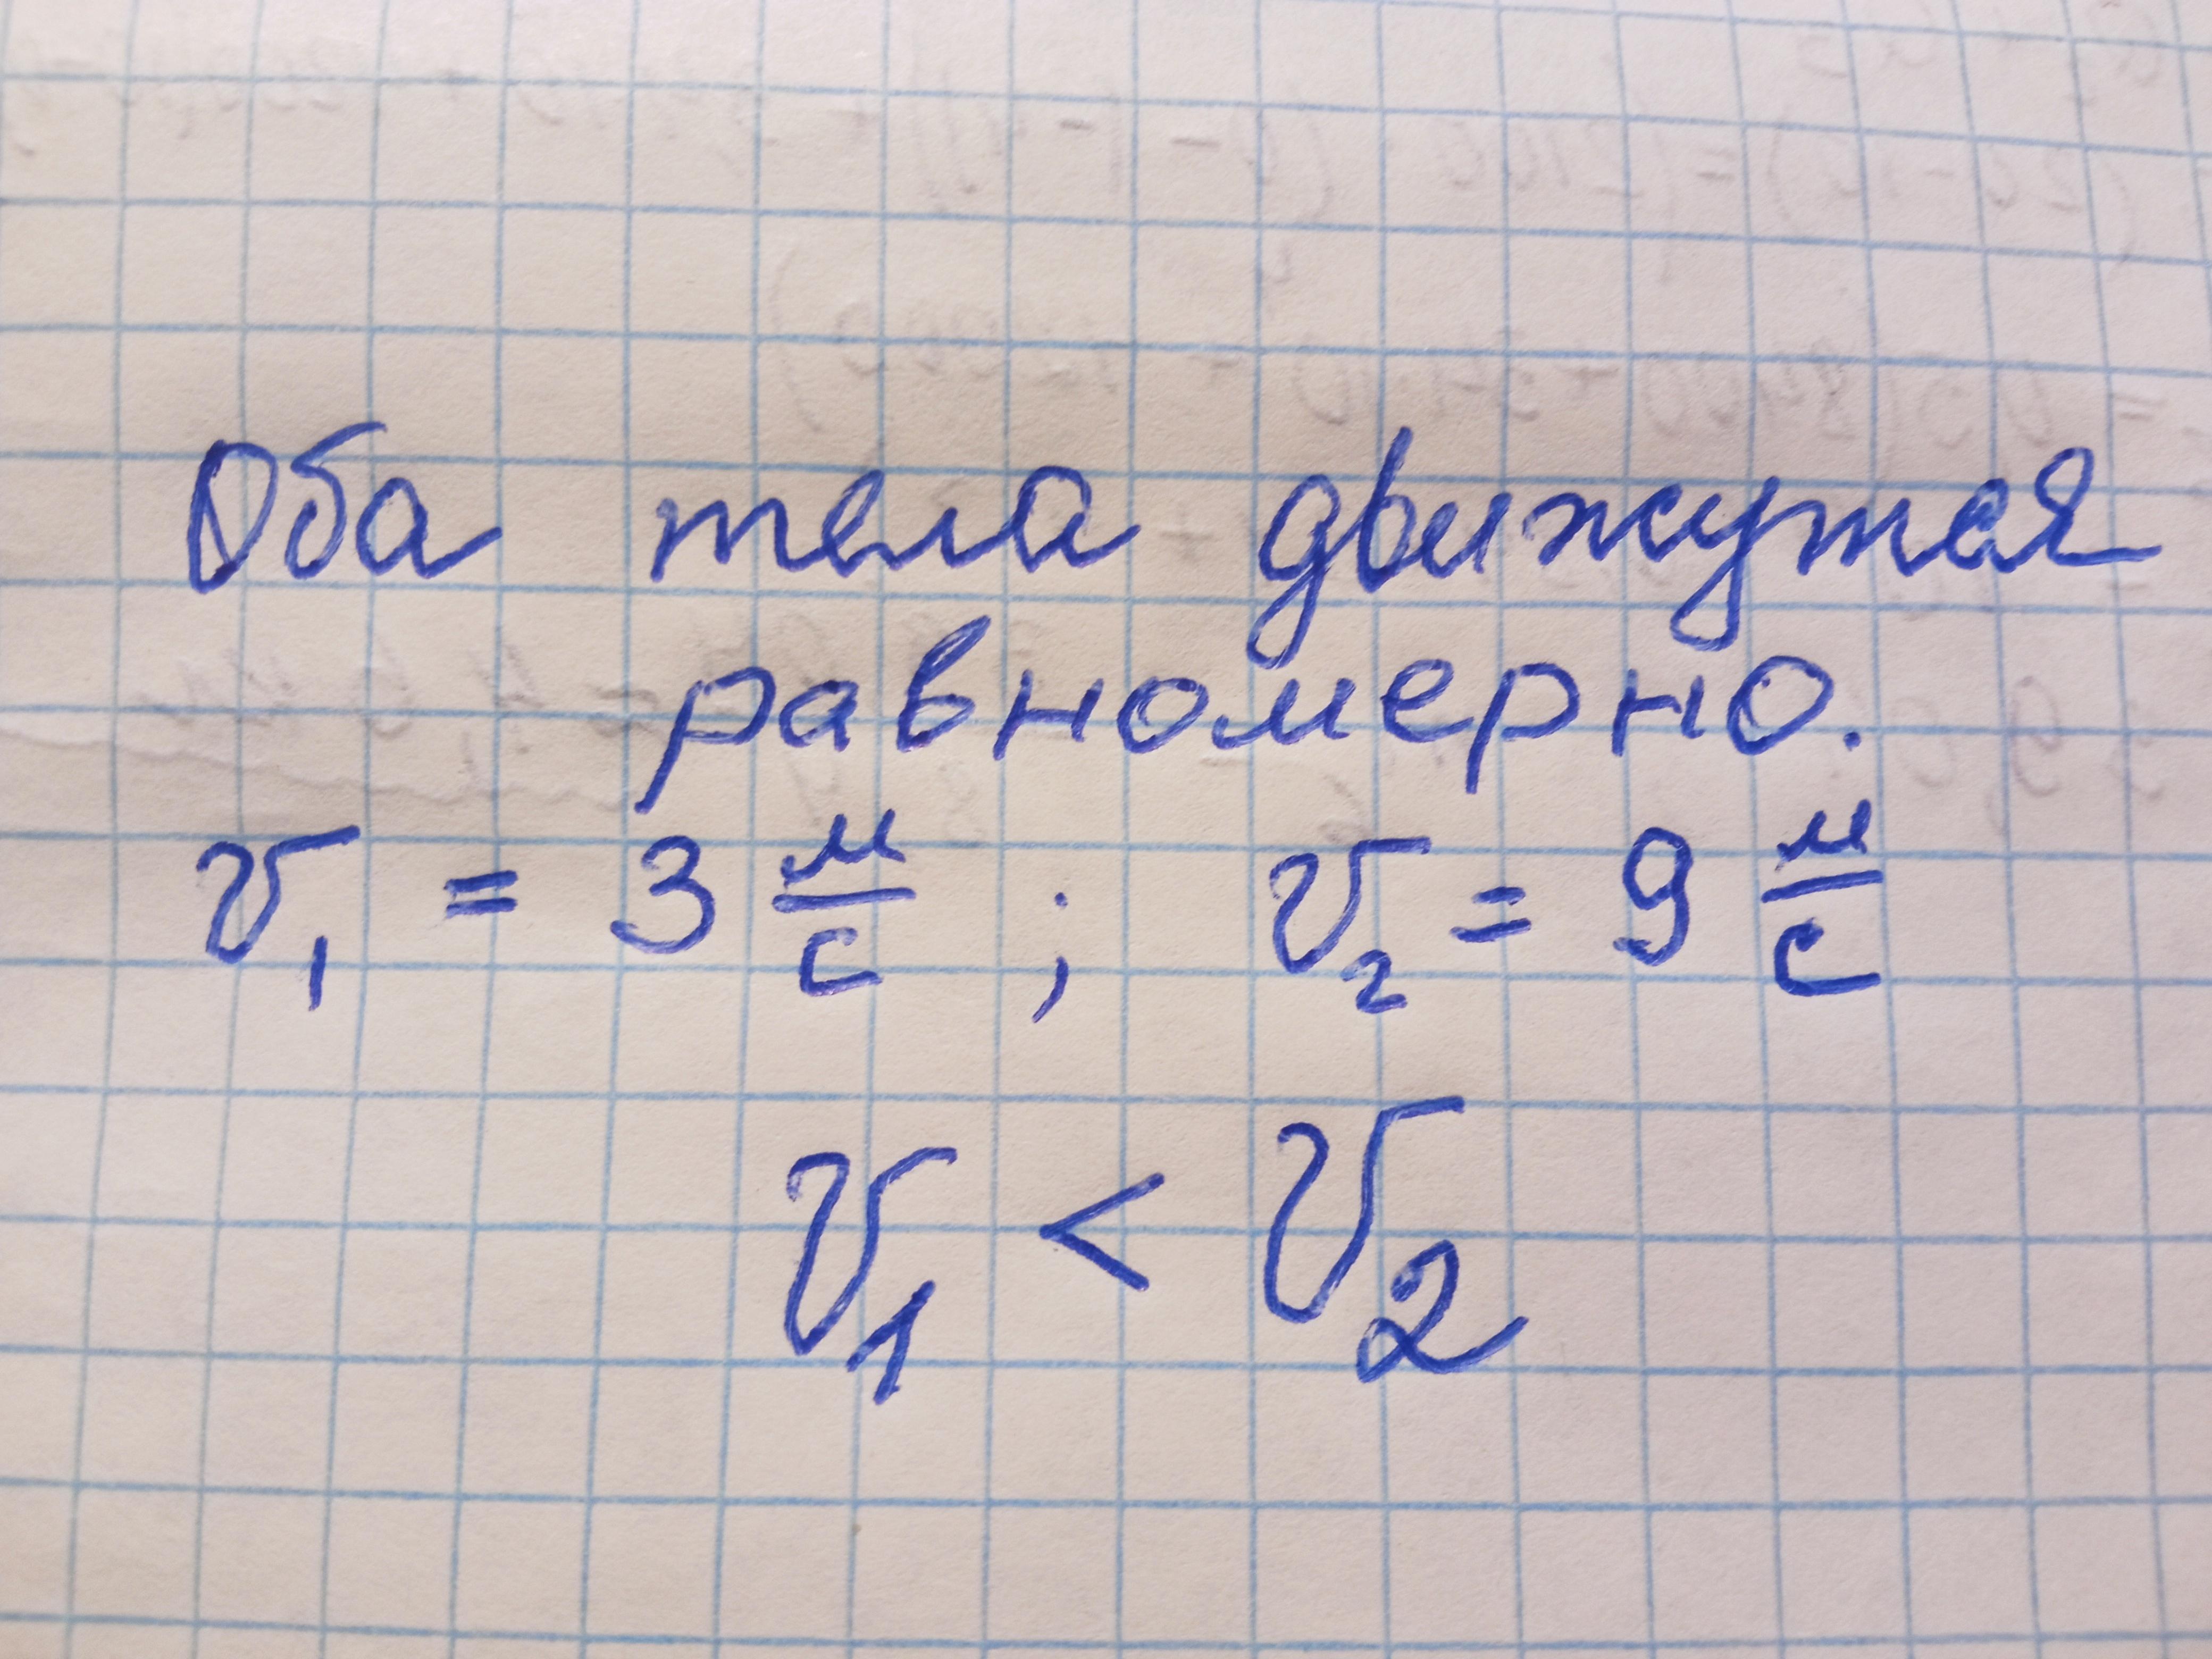 Оба тела движутся
равномерно.
v₁ = 3 м/с ; v₂ = 9 м/с
v₁ < v₂